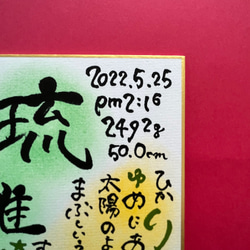 2022.5.25
pm2:16
2492g
50.0cm
ひかり
ゆめにあ
太陽のよ
まぶしいえ
琉
進